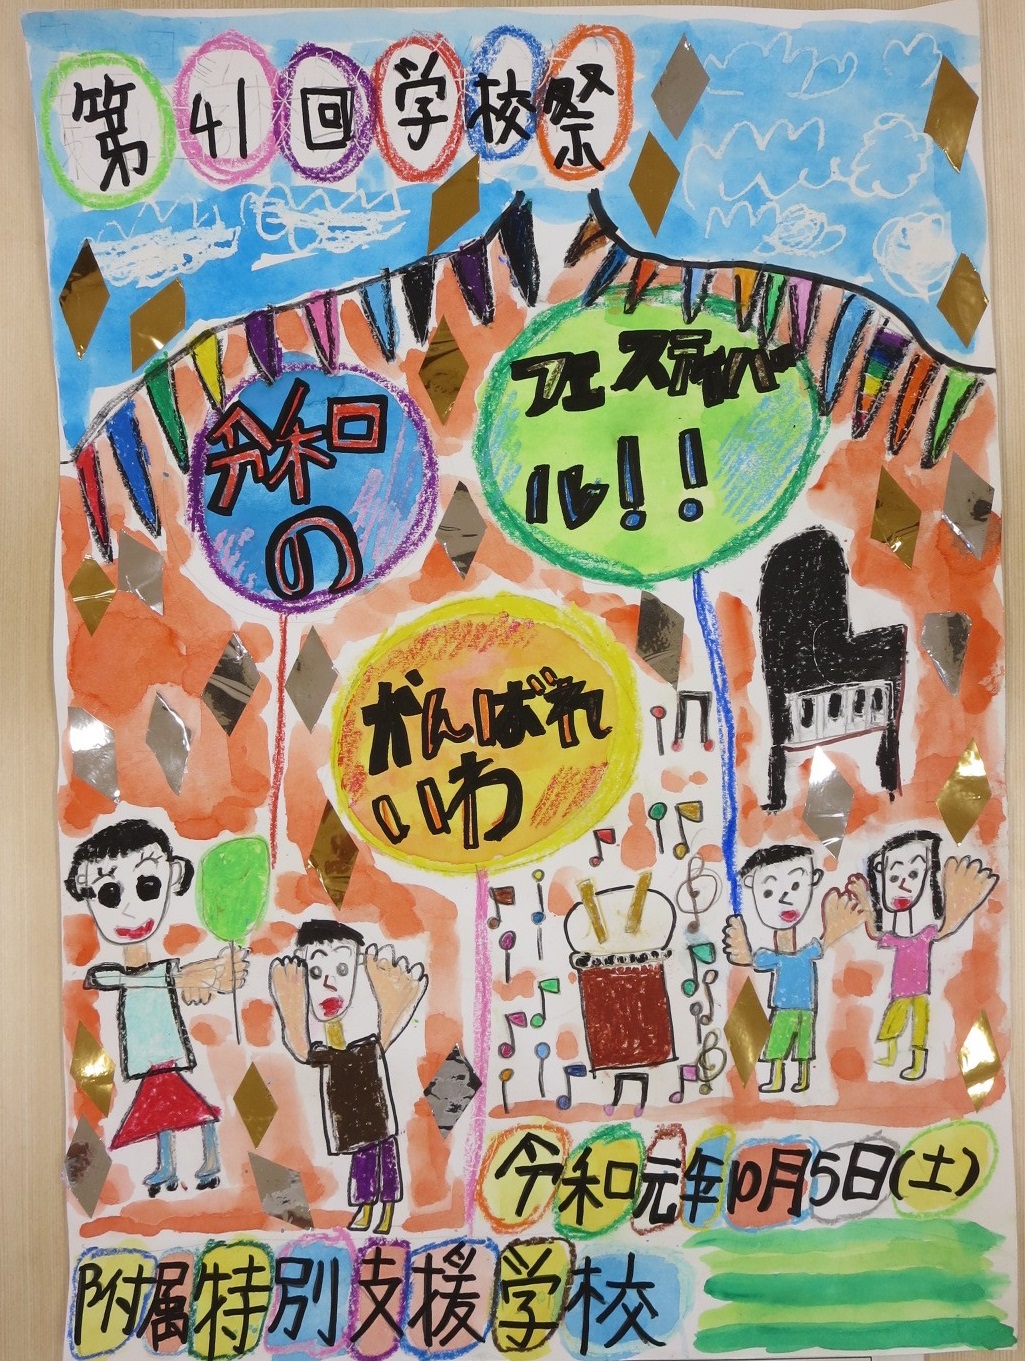 第41回学校祭
令和
の
フェスティバー
ル!!
がんばれ
いわ
令和元年10月5日(土)
附属特別支援学校